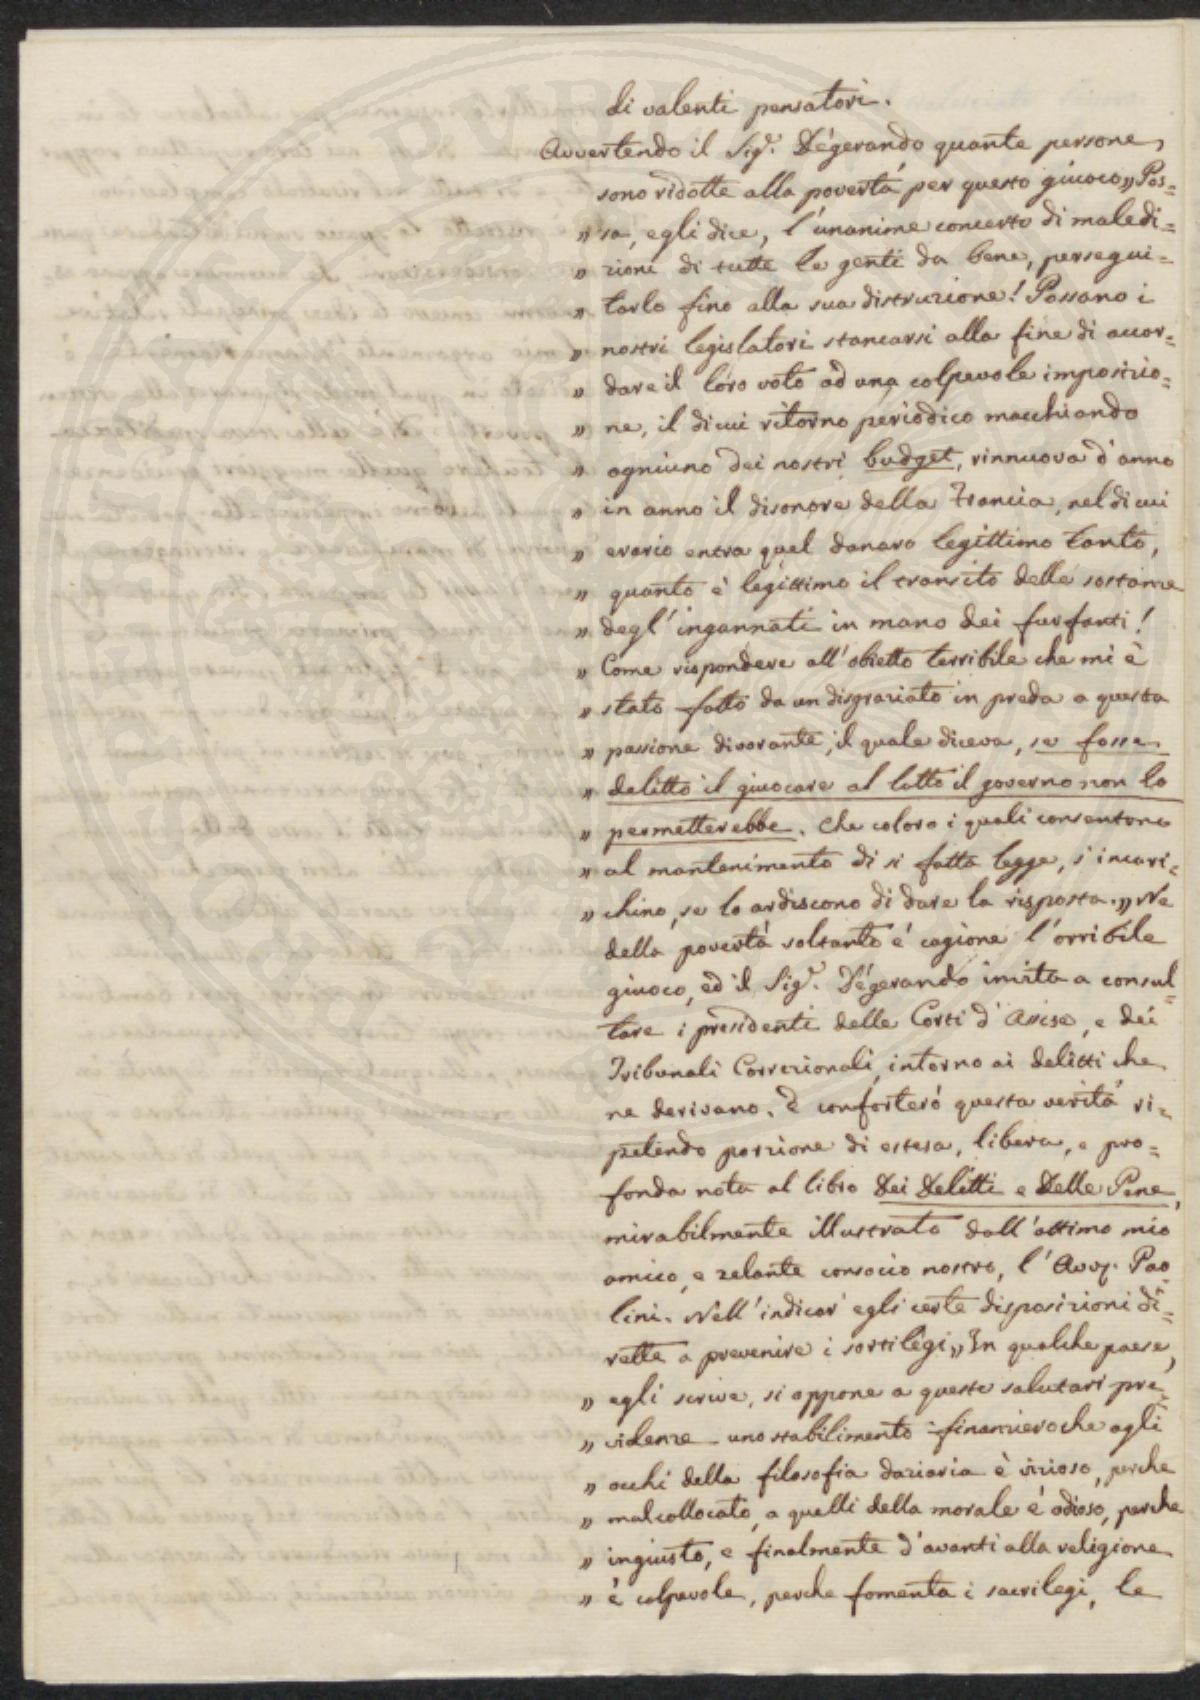 di valenti pensatori.
Avvertendo il Sig.r Dégerando quante persone
sono ridotte alla povertá per questo giuoco „ Pos=
„ sa, egli dice, l'unanime concerto di maledi=
„ zioni di tutte le genti da bene, persegui=
„ tarlo fino alla sua distruzione! Possano i
„ nostri legislatori stancarsi alla fine di accor=
„ dare il loro voto ad una colpevole imposizio=
„ ne, il di cui ritorno periodico macchiando
„ ogniuno dei nostri budget, rinnuova d'anno
„ in anno il disonore della Francia, nel di cui
„ erario entra quel danaro legittimo tanto,
„ quanto è legittimo il transito delle sostanze
„ degl'ingannati in mano dei furfanti!
„ Come rispondere all'obietto terribile che mi è
„ stato fatto da un disgraziato in preda a questa
„ passione divorante, il quale diceva, se fosse
„ delitto il giuocare al lotto il governo non lo
„ permetterebbe. Che coloro i quali consentono
„ al mantenimento di si fatta legge, s'incari=
„ chino, se lo ardiscono di dare la risposta. „ Ne
della povertá soltanto é cagione l'orribile
giuoco, ed il Sig.r Dégerando invita a consul=
tare i presidenti delle Corti d'Assise, e dei
Tribunali Correzionali, intorno ai delitti che
ne derivano. E conforteró questa veritá ri=
petendo porzione di estesa, libera, e pro=
fonda nota al libro Dei Delitti e Delle Pene,
mirabilmente illustrato dall'ottimo mio
amico, e zelante consocio nostro, l'Avv. Pao
lini. Nell'indicar egli certe disposizioni di=
rette a prevenire i sortilegi „ In qualche paese,
„ egli scrive, si oppone a queste salutari pre
„ videnze uno stabilimento finanziero che agli
„ occhi della filosofia daziaria è vizioso, perche
„ mal collocato, a quelli della morale é odioso, perche
„ ingiusto, e finalmente d'avanti alla religione
„ è colpevole, perche fomenta i sacrilegi, le